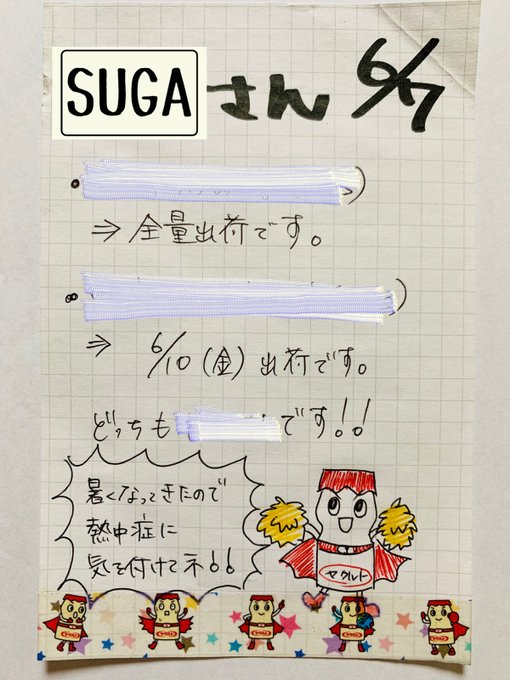 SUGAさん 6/7
⇒ 全量出荷です。
⇒ 6/10(金)出荷です。
どっちも です!!
暑くなってきたので
熱中症に
気を付けてネ!!
ヤクルト